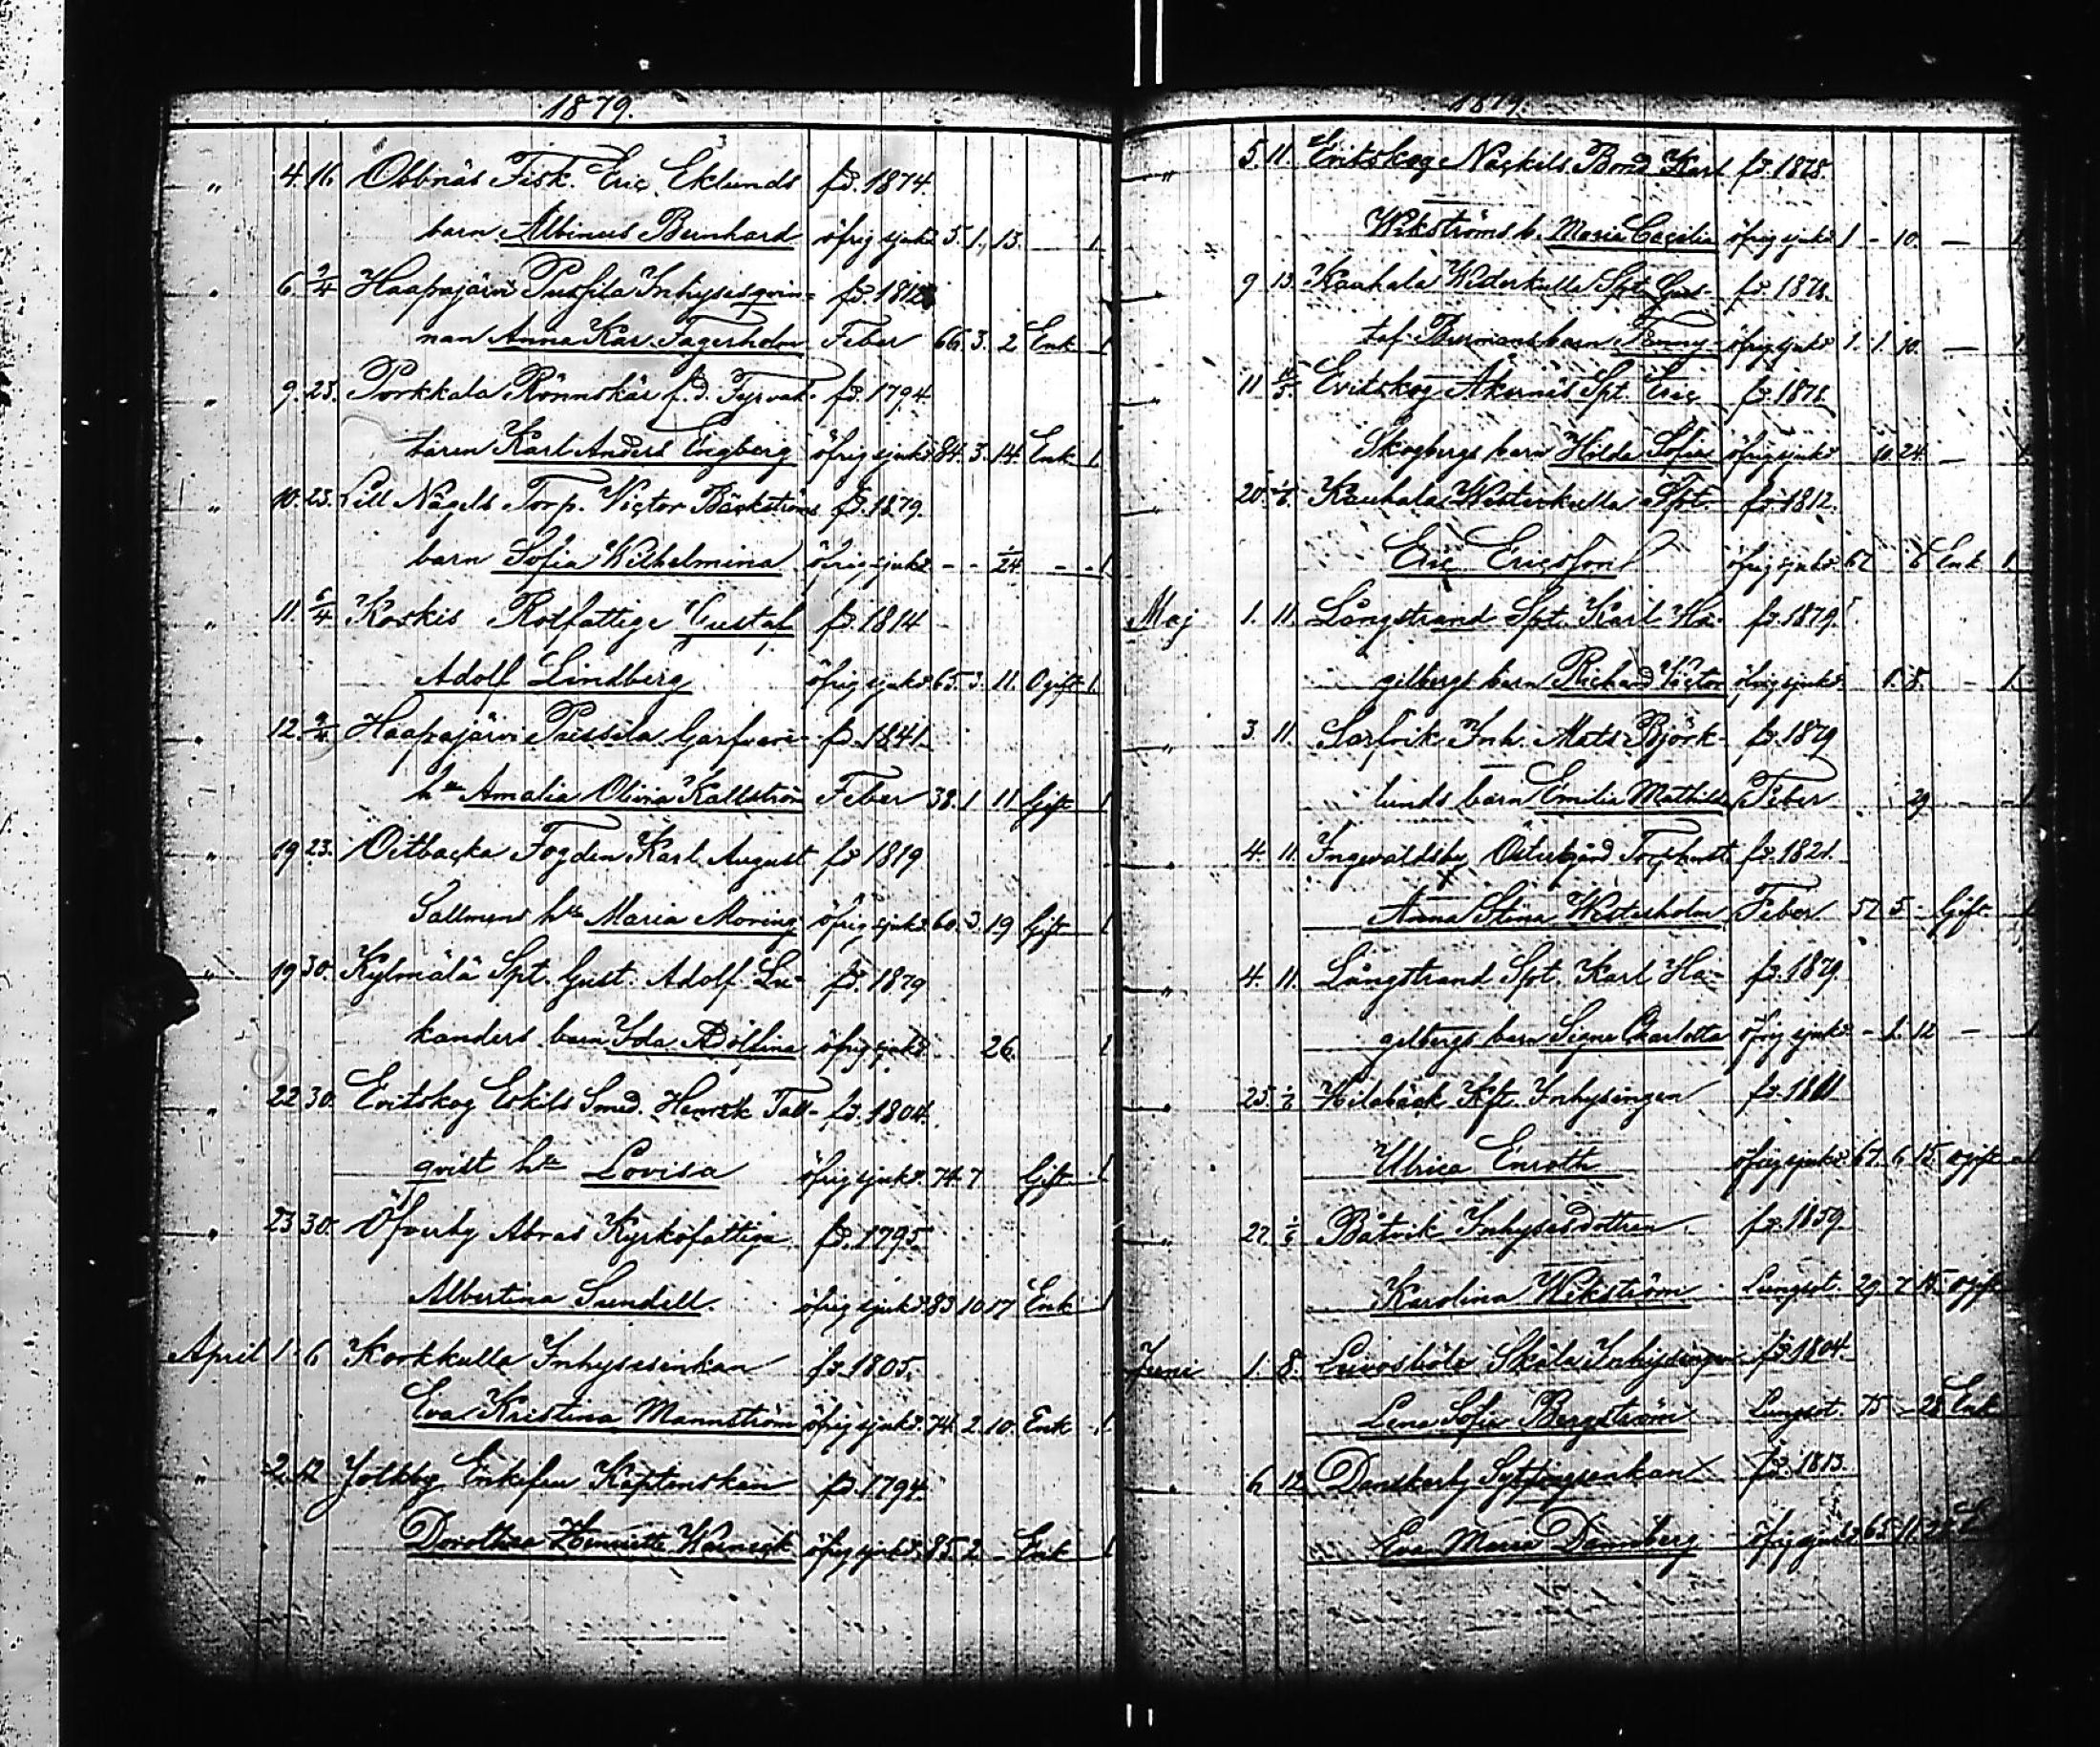 1879.
" 4. 16. Obbnäs Fisk. Eric Eklunds fd. 1874.
barn Albinus Bernhard öfrig sjukd. 5. 1. 13. — 1.
" 6. 9/4 Haapajärvi Pussila Inhysesqvin- fd. 1812
nan Anna Kar. Fagerholm Feber 66. 3. 2 Enk 1
" 9. 23. Porkkala Rönnskär f.d. Fyrvak- fd. 1794.
taren Karl Anders Engberg öfrig sjukd. 84. 3. 14. Enk 1.
" 10. 23. Lill Nägels Torp. Victor Bäckströms fd. 1879.
barn Sofia Wilhelmina öfrig sjukd. - - 1/24 - - 1
" 11. 6/4 Koskis Rotfattige Gustaf fd. 1814
Adolf Lindberg öfrig sjukd. 65. 3. 11. Ogift 1.
" 12. 9/4 Haapajärvi Pussila Garfvare- fd. 1841
h. Amalia Olivia Källström Feber 38. 1 11 Gift 1
" 19 23. Oitbacka Fogden Karl August fd 1819
Sallmens h. Maria Moring öfrig sjukd. 60. 3. 19 Gift 1
" 19 30. Kylmälä Spt. Gust. Adolf Lu- fd. 1879
kanders barn Ida Adolfina öfrig sjukd. 26. 1
" 22 30. Evitskog Eskils Smed. Henrik Tall- fd. 1804.
qvist h. Lovisa öfrig sjukd. 74. 7 Gift 1
" 23 30. Öfverby Abras Kyrkofattiga fd. 1795
Albertina Sundell. öfrig sjukd. 83 10 17 Enk 1
April 1. 6 Korkkulla Inhysesenkan fd. 1805.
Eva Kristina Mannström öfrig sjukd. 74. 2. 10. Enk 1.
" 2. 12 Jolkby Enkefru Kaptenskan fd. 1794.
Dorothea Henriette öfrig sjukd. 85. 2 - Enk 1
1879.
" 5. 11. Evitskog Näckels Bond Karl fd. 1878.
Wikströms b. Maria Cecilia öfrig sjukd. 1 - 10. — 1
" 9 13. Kauhala Westerkulla Spt. Gus- fd. 1878.
taf Burmans barn Fanny öfrig sjukd. 1. 1. 10. — 1
" 11 Evitskog Åkernäs Spt. Eric fd. 1878
Skogbergs barn Hilda Sofia öfrig sjukd. 10. 24. — 1
" 20. 1/6. Kauhala Westerkulla Spt. fd. 1812.
Eric Ericsson öfrig sjukd. 67 6 Enk 1
Maj 1. 11. Långstrand Spt. Karl Ha- fd. 1879.
gelbergs barn Richard Victor öfrig sjukd. 1. 8. - 1.
" 3 11. Sarfvik Inh. Mats Björk- fd. 1879
lunds barn Emilia Mathilda Feber 29 - - 1
" 4. 11. Ingevaldsby Östergård Torphust. fd. 1821.
Anna Stina Westerholm Feber 57 5 - Gift 1
" 4. 11. Långstrand Spt. Karl Ha- fd. 1879
gelbergs barn Signe Charlotta öfrig sjukd. - 1. 12 - 1
" 25 1/6 Kft. Inhysingen fd. 1811
Ulrica Enroth öfrig sjukd. 67. 6 15. Ogift 1
" 27. 1/6 Båtvik Inhysesdottren fd. 1859
Karolina Wikström Lungsot. 29. 7 15. Ogift
Juni 1. 8. Inhysingen fd. 1804.
Lena Sofia Bergström Lungsot. 75 - 28 Enk
" 6 12 Danskarby Sytningsenkan fd. 1813.
Eva Maria Dannberg öfrig sjukd. 65. 11. 22